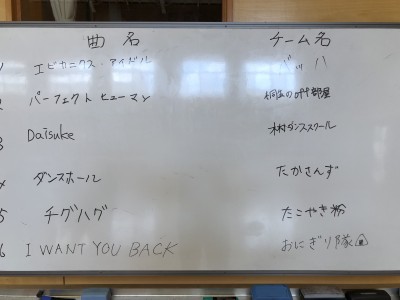 曲名 チーム名
1 エビカニクス・アイドル バッハ
2 パーフェクトヒューマン の 部屋
3 Daisuke 木村ダンススクール
4 ダンスホール たかさんず
5 チグハグ たこやき粉
6 I WANT YOU BACK おにぎり隊🍙